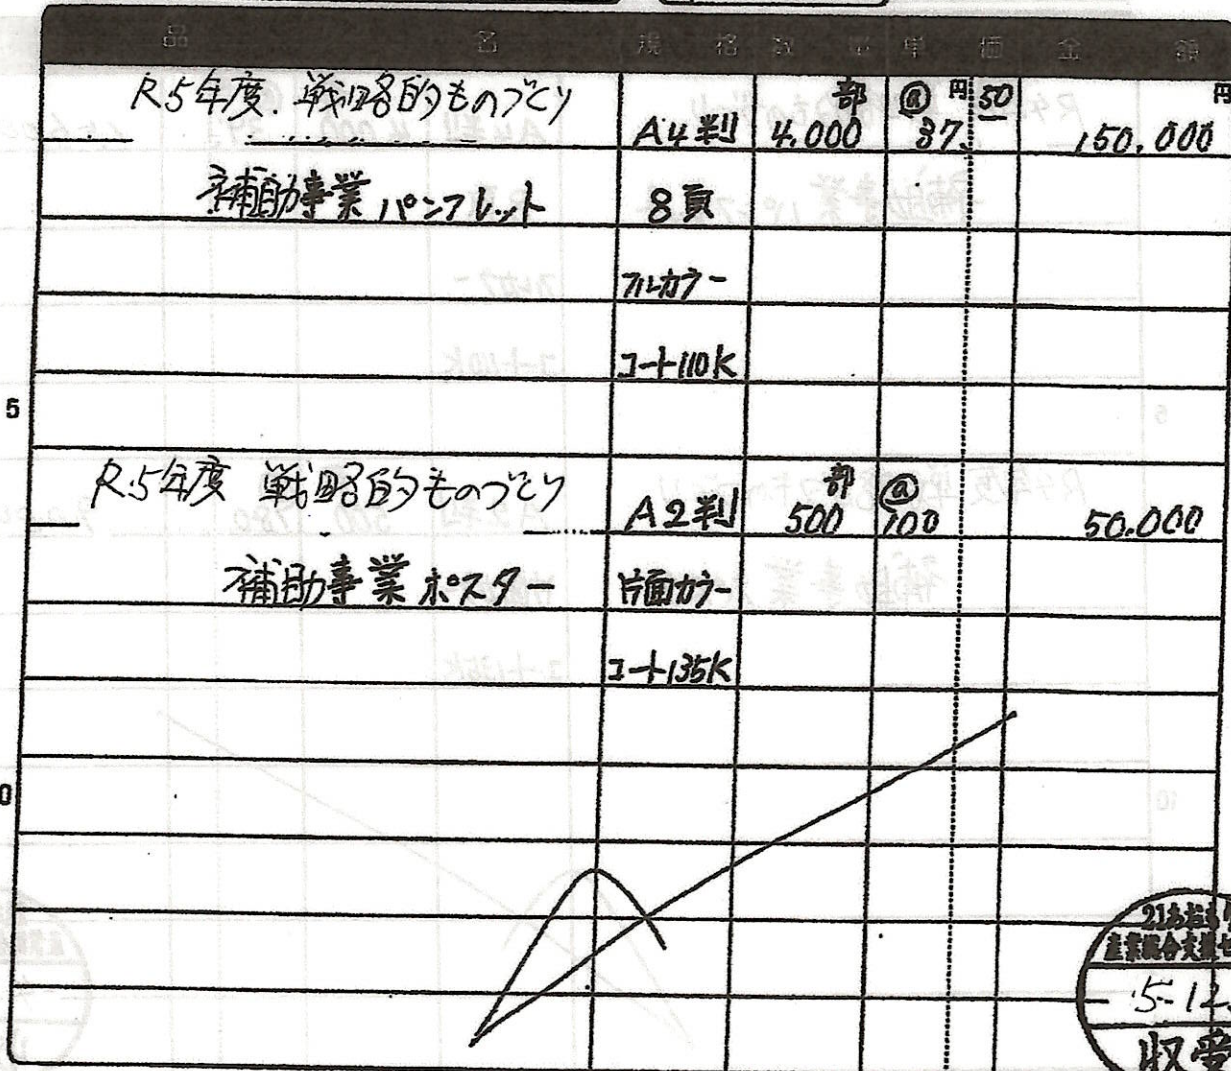 品名 規格 数量 単価 金額
R5年度 戦略的ものづくり A4判 4,000部 @37円50 150,000円
補助事業パンフレット 8頁
フルカラー
コート110K
5
R5年度 戦略的ものづくり A2判 500部 @100 50,000
補助事業ポスター 片面カラー
コート135K
0
21あおもり
産業総合支援セ
5-12.
収受